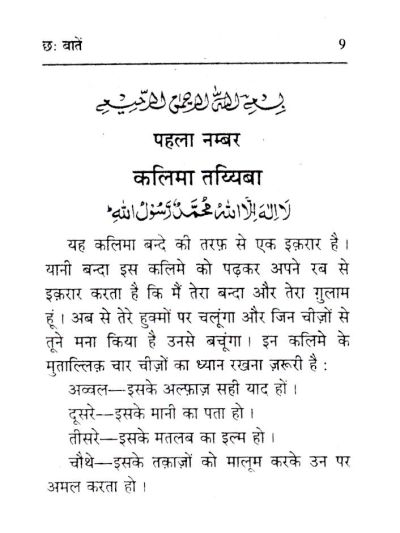 छः बातें 9
بسم الله الرحمن الرحيم
पहला नम्बर
कलिमा तय्यिबा
لَا اِلٰهَ اِلَّا اللهُ مُحَمَّدٌ رَّسُوْلُ اللهِ
यह कलिमा बन्दे की तरफ़ से एक इक़रार है ।
यानी बन्दा इस कलिमे को पढ़कर अपने रब से
इक़रार करता है कि मैं तेरा बन्दा और तेरा ग़ुलाम
हूं । अब से तेरे हुक्मों पर चलूंगा और जिन चीज़ों से
तूने मना किया है उनसे बचूंगा । इन कलिमे के
मुताल्लिक़ चार चीज़ों का ध्यान रखना ज़रूरी है :
अव्वल—इसके अल्फ़ाज़ सही याद हों ।
दूसरे—इसके मानी का पता हो ।
तीसरे—इसके मतलब का इल्म हो ।
चौथे—इसके तक़ाज़ों को मालूम करके उन पर
अमल करता हो ।